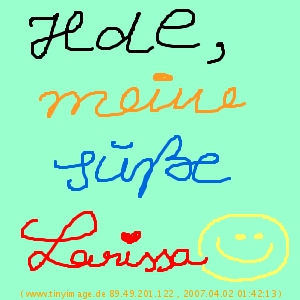 Hdl,
meine
süße
Larissa
(www.tinyimage.de 89.49.201.122 , 2007.04.02 01:42:13)